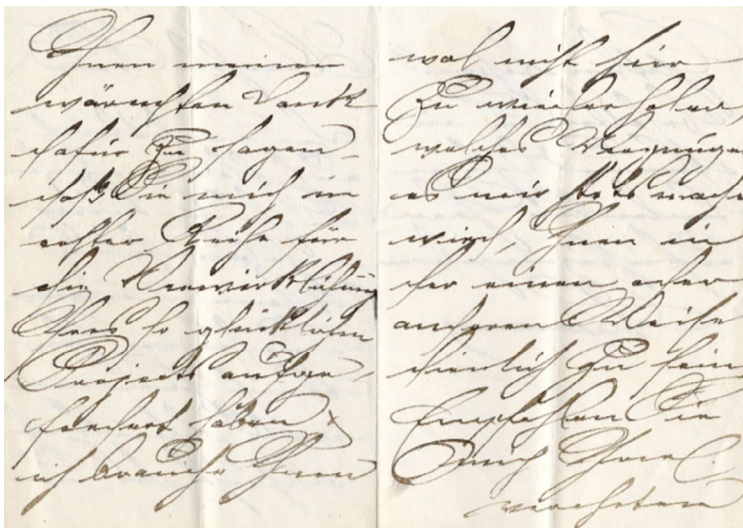 Ihnen meinen
wärmsten Dank
dafür zu sagen,
daß Sie mich in
erster Reihe für
die Verwirklichung
Ihres so glücklichen
Projects aufge-
fordert haben &
ich brauche Ihnen
wol nicht hier
zu wiederholen
welches Vergnügen
es mir stets mache
wird, Ihnen in
der einen oder
anderen Weise
dienlich zu sein
Empfehlen Sie
mich Ihrer
verehrten